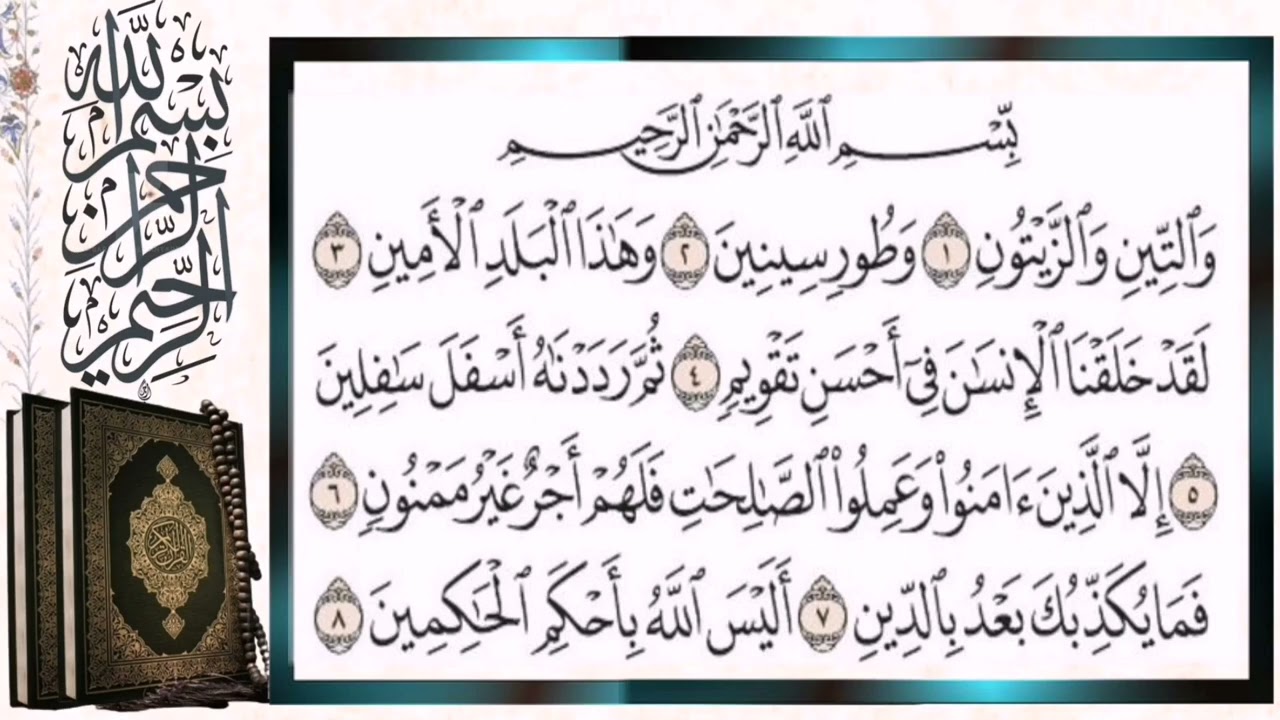 بِسْمِ ٱللَّهِ ٱلرَّحْمَٰنِ ٱلرَّحِيمِ
بِّسْمِ ٱللَّهِ ٱلرَّحْمَٰنِ ٱلرَّحِيمِ
وَٱلتِّينِ وَٱلزَّيْتُونِ ١ وَطُورِ سِينِينَ ٢ وَهَٰذَا ٱلْبَلَدِ ٱلْأَمِينِ ٣
لَقَدْ خَلَقْنَا ٱلْإِنسَٰنَ فِىٓ أَحْسَنِ تَقْوِيمٍ ٤ ثُمَّ رَدَدْنَٰهُ أَسْفَلَ سَٰفِلِينَ
٥ إِلَّا ٱلَّذِينَ ءَامَنُوا۟ وَعَمِلُوا۟ ٱلصَّٰلِحَٰتِ فَلَهُمْ أَجْرٌ غَيْرُ مَمْنُونٍ ٦
فَمَا يُكَذِّبُكَ بَعْدُ بِٱلدِّينِ ٧ أَلَيْسَ ٱللَّهُ بِأَحْكَمِ ٱلْحَٰكِمِينَ ٨
القرآن الكريم